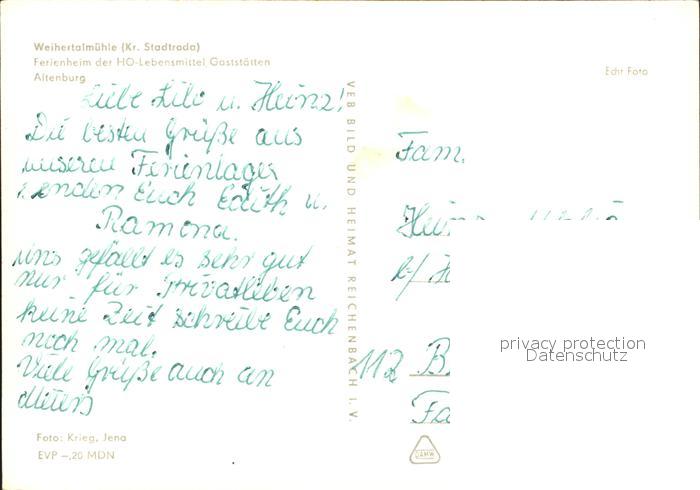 Weihertalmühle (Kr. Stadtroda)
Ferienheim der HO-Lebensmittel Gaststätten
Altenburg
Echt Foto
Liebe Lilo u. Heinz!
Die besten Grüße aus
unseren Ferienlager
senden Euch Edith u.
Ramona.
uns gefällt es sehr gut
nur für Privatleben
keine Zeit schreibe Euch
noch mal.
Viele Grüße auch an
VEB BILD UND HEIMAT REICHENBACH I. V.
Fam.
112 B
Fa
privacy protection
Datenschutz
Foto: Krieg, Jena
EVP –,20 MDN
DAMW